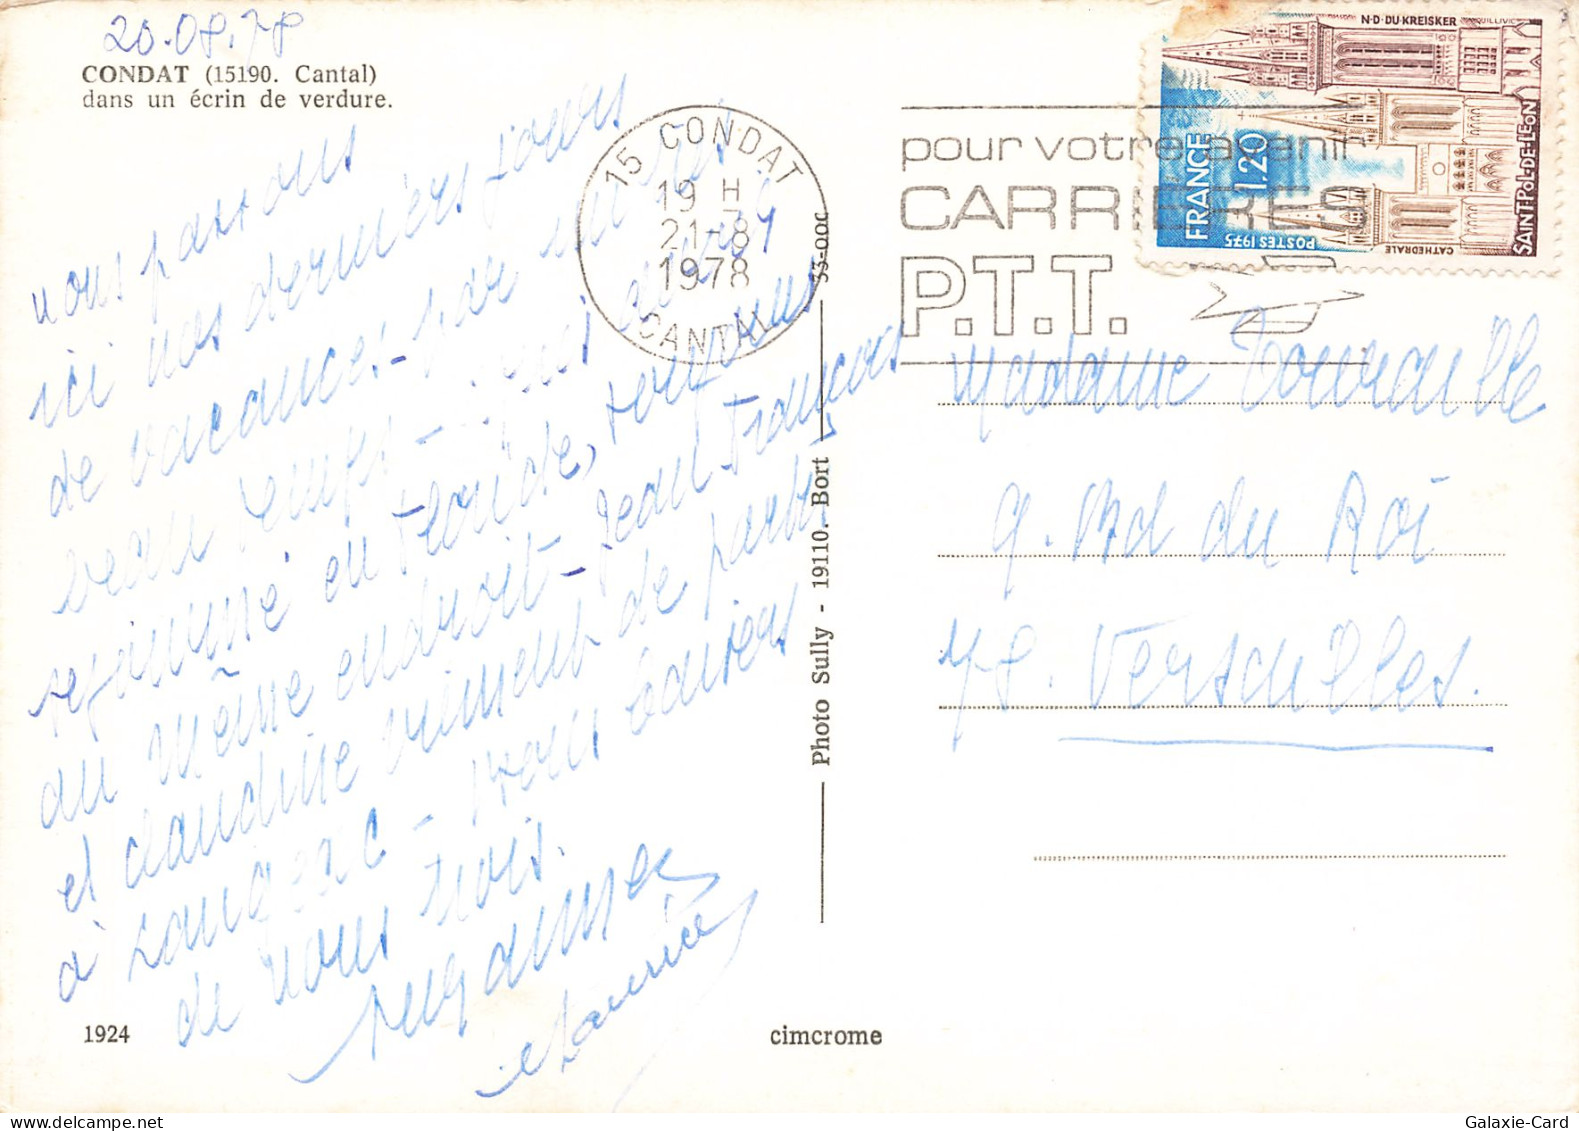 20.08.78
CONDAT (15190. Cantal)
dans un écrin de verdure.
nous passons
ici nos derniers jours
de vacances - par un très
beau temps -
en Floride, toujours
au même endroit - Jean François
et claudine viennent de partir
à - Bons baisers
de nous trois.
et Maurice
1924
Photo Sully - 19110. Bort
33-00C
cimcrome
15 CONDAT
19 H
21-8
1978
CANTAL
pour votre avenir
CARRIERES
P.T.T.
N·D·DU·KREISKER
QUILLIVIC
FRANCE
1,20
POSTES 1975
CATHEDRALE
SAINT POL-DE-LEON
Madame
9. Bd du Roi
78. Versailles.
Galaxie-Card